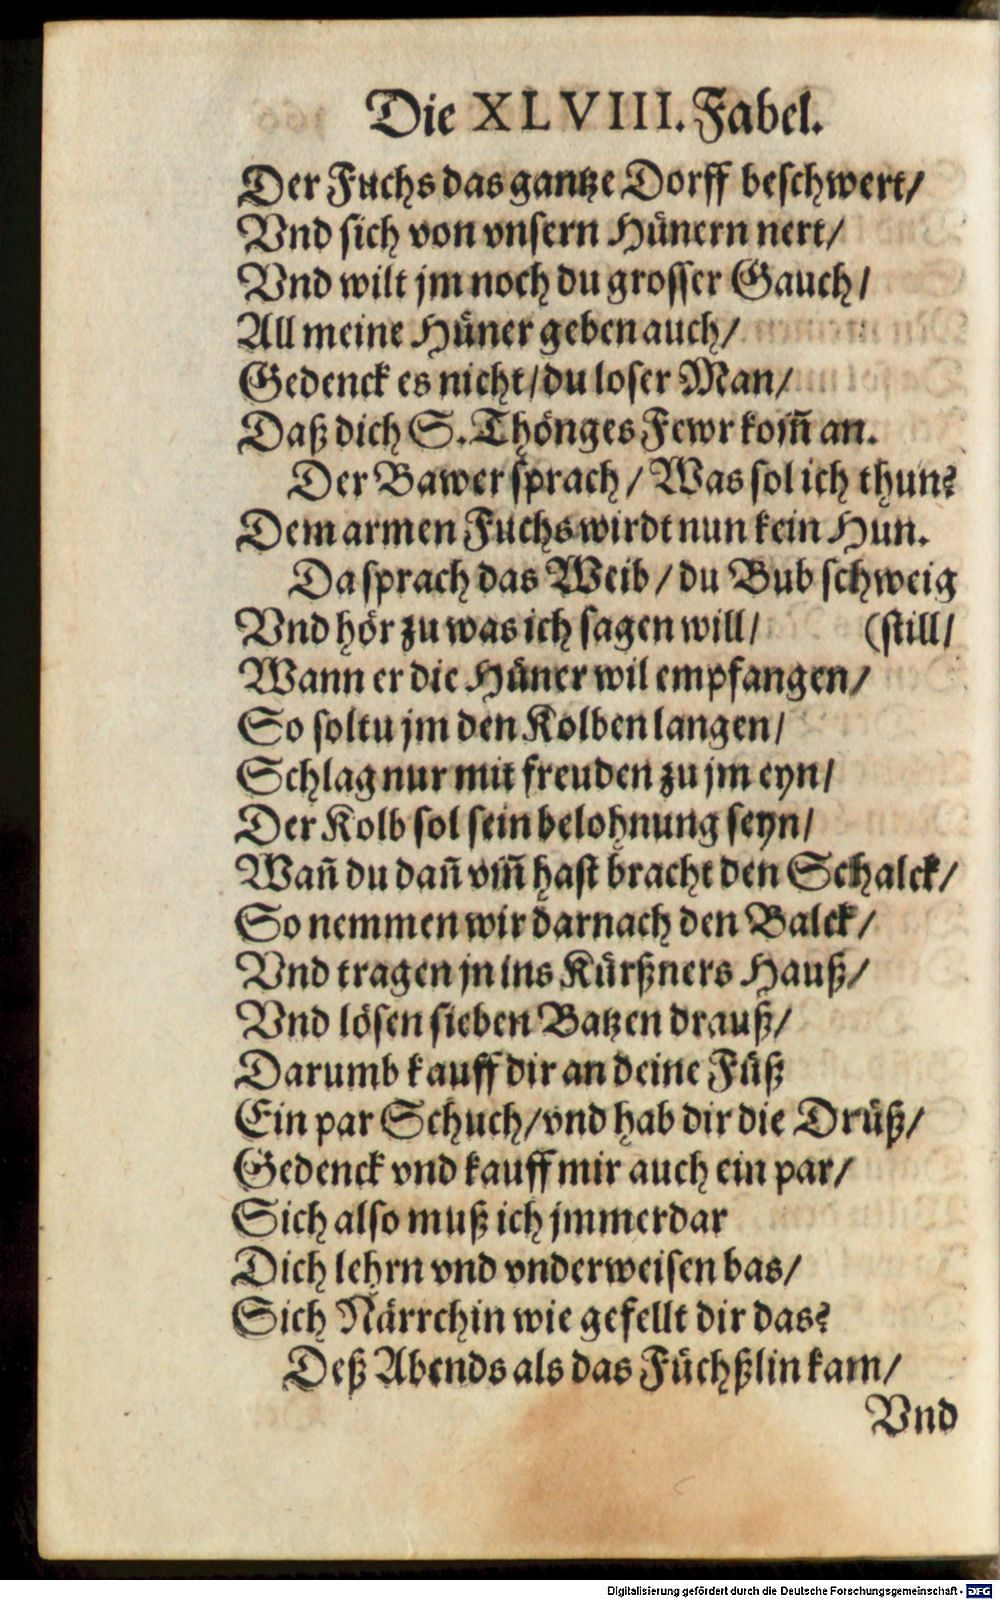 Die XLVIII. Fabel.
Der Fuchs das gantze Dorff beschwert/
Vnd sich von vnsern Hünern nert/
Vnd wilt jm noch du grosser Gauch/
All meine Hüner geben auch/
Gedenck es nicht/du loser Man/
Daß dich S. Thönges Fewr kom̃ an.
Der Bawer sprach/ Was sol ich thun?
Dem armen Fuchs wirdt nun kein Hun.
Da sprach das Weib/ du Bub schweig
Vnd hör zu was ich sagen will/ (still/
Wann er die Hüner wil empfangen/
So soltu jm den Kolben langen/
Schlag nur mit freuden zu jm eyn/
Der Kolb sol sein belohnung seyn/
Wañ du dañ vm̃ hast bracht den Schalck/
So nemmen wir darnach den Balck/
Vnd tragen jn ins Kürßners Hauß/
Vnd lösen sieben Batzen drauß/
Darumb kauff dir an deine Füß
Ein par Schuch/vnd hab dir die Drüß/
Gedenck vnd kauff mir auch ein par/
Sich also muß ich jmmerdar
Dich lehrn vnd vnderweisen bas/
Sich Närrchin wie gefellt dir das?
Deß Abends als das Füchßlin kam/
Vnd
Digitalisierung gefördert durch die Deutsche Forschungsgemeinschaft - DFG